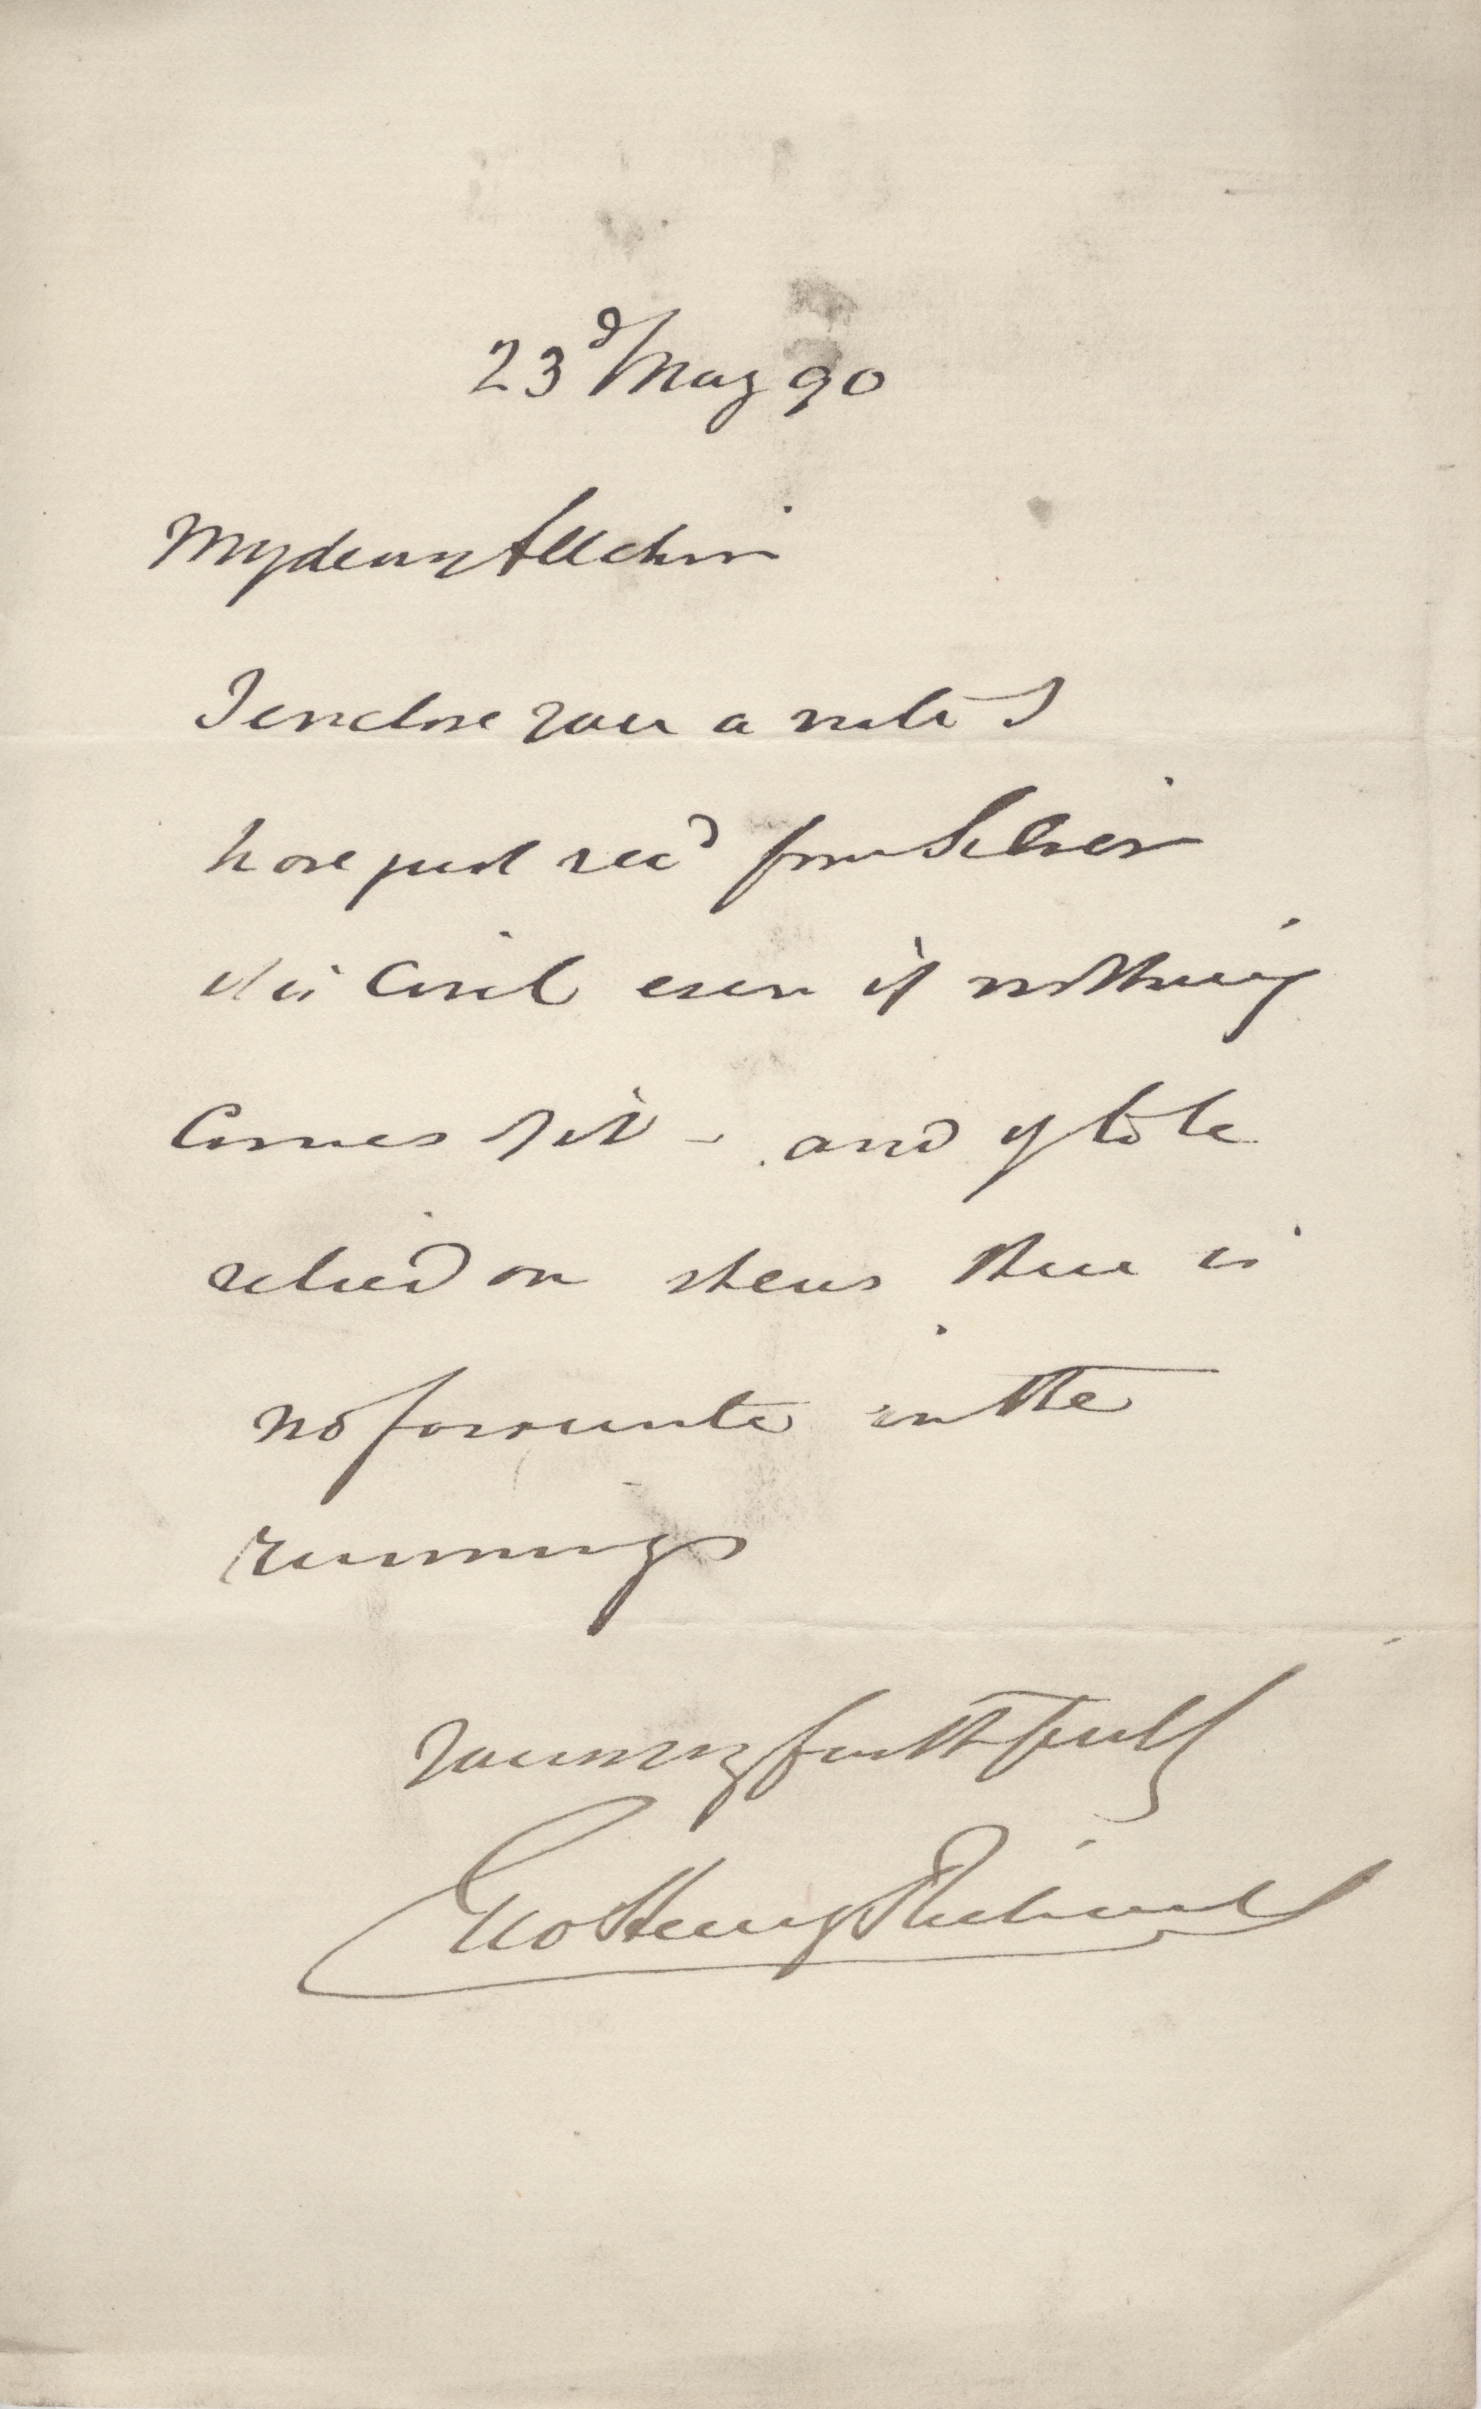 23d May 90
My dear Allchin
I enclose you a note I
have just recd from
it is Civil even if nothing
Comes of it – and if to be
relied on shews there is
no favourite in the
running
Yours very faithfully
Geo Henry